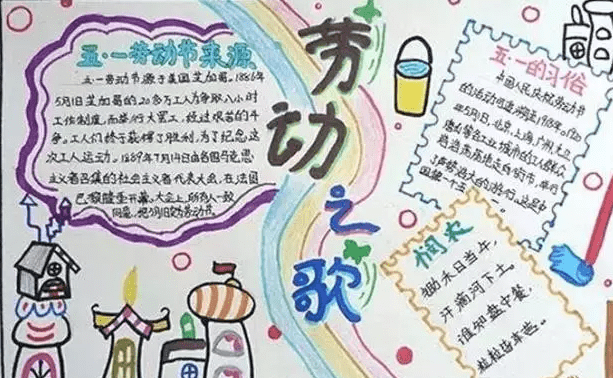 五·一劳动节来源
五一劳动节源于美国芝加哥。1886年
5月1日芝加哥的20多万工人为争取八小时
工作制度,而举行大罢工,经过艰苦的斗
争。工人们终于获得了胜利,为了纪念这
次工人运动。1889年7月14日由各国马克思
主义者召集的社会主义者代表大会,在法国
巴黎隆重开幕。大会上,所有人一致
同意,把5月1日
劳动之歌
五·一的习俗
中国人民庆祝劳动节
的活动可追溯至1918年。
年5月1日,北京,上海,广州,九江
唐山等各工业城市的工人群众
浩浩荡荡地走向街市,举行
了声势浩大的游行。这是中
国第一个五一
悯农
锄禾日当午,
汗滴河下土。
谁知盘中餐,
粒粒皆辛苦。